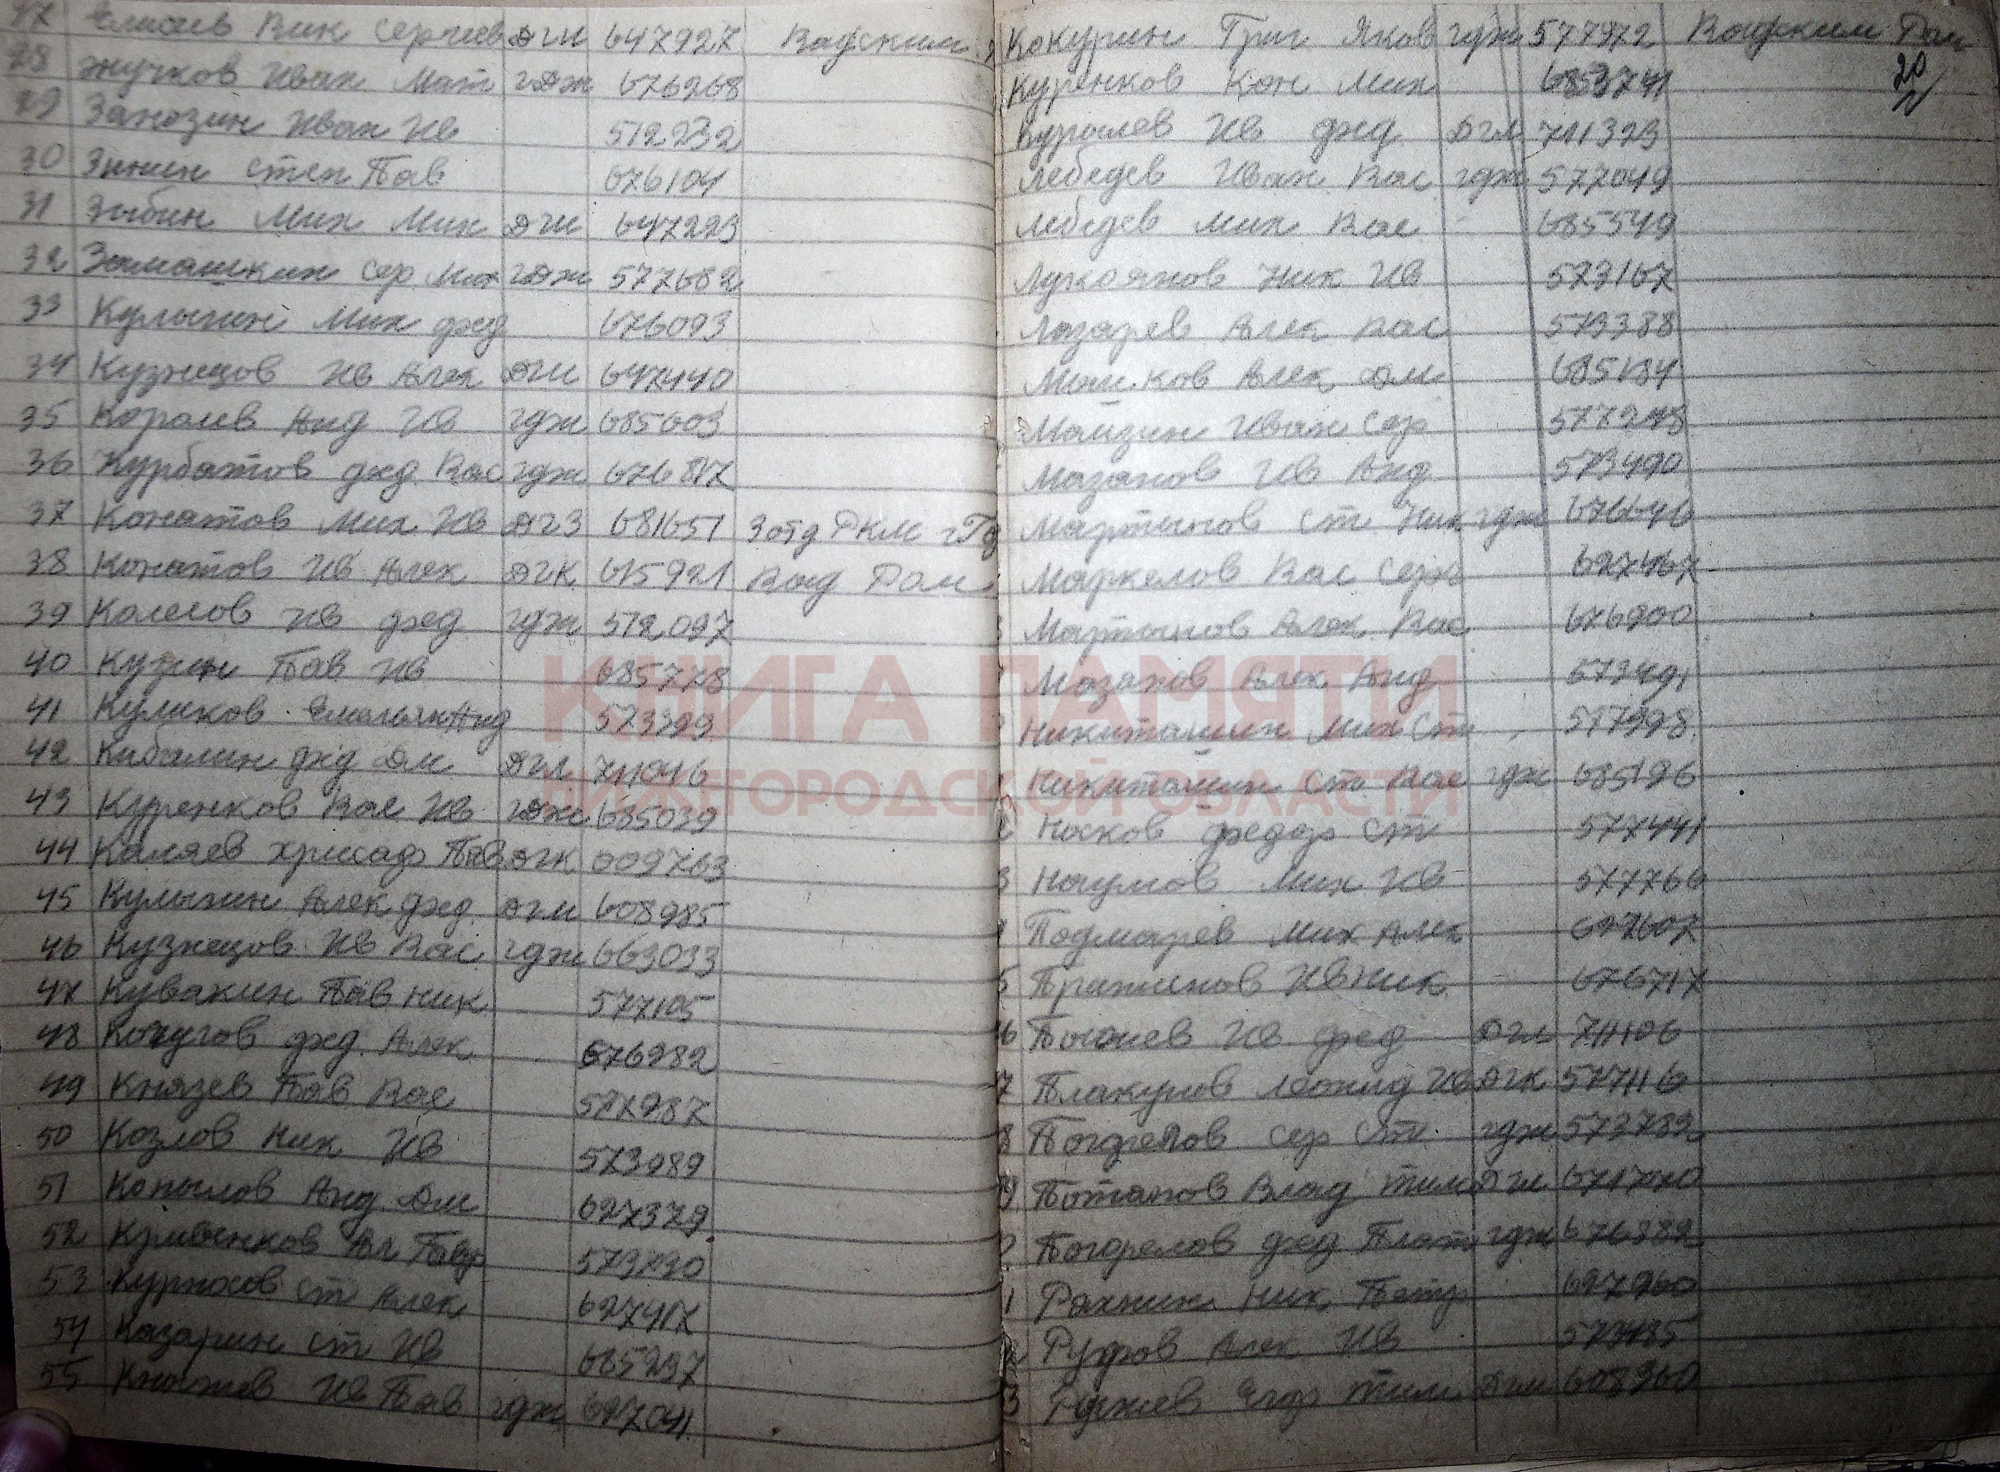 Вик Сергеев ДГИ 647927 Вадским
28 Жучков Иван Мат ГДЖ 676268
29 Занозин Иван Ив 572232
30 Зинин Степ Пав 676104
31 Зыбин Мих Мих ДГИ 647223
32 Замашкин Сер Мих ГДЖ 577682
33 Кулыгин Мих Фед 676093
34 Кузнецов Ив Алек ДГИ 647440
35 Королев Анд Ив ГДЖ 685603
36 Курбатов Фед Вас ГДЖ
37 Конатов Мих Ив ДГЗ 681651 3 отд РКМ
38 Конатов Ив Алек ДГК 615921 Вад Рай
39 Колесов Ив Фед ГДЖ 572097
40 Кузин Пав Ив 685778
41 Куликов Емельян Анд 573399
42 Кибалин Фед Дм ДГЛ 711046
43 Куренков Вас Ив ГДЖ 685039
44 Каляев Хрисаф Пав ДГК 009763
45 Кулыгин Алек Фед ДГМ 608985
46 Кузнецов Ив Вас ГДЖ 663033
47 Кувакин Пав Ник 577105
48 Фед Алек 676282
49 Князев Пав Вас 577987
50 Козлов Ник Ив 573989
51 Копылов Анд Дм 627379
52 Ал
53 Курносов Ст Алек 627417
54 Казарин Ст Ив 685297
55 Ив Пав ГДЖ 627041
Кокурин Григ Яков ГДЖ 577972 Вадским Рай
Куренков Кон Мих 20
Ив Фед ДГЛ 711323
Лебедев Иван Вас ГДЖ 577049
Лебедев Мих Вас 685549
Лукоянов Ник Ив 573167
Лазарев Алек Вас 573388
Алек Дм 685184
Иван Сер 577248
Мазанов Ив Анд 573490
Мартынов Ст Ник ГДЖ 676646
Маркелов Вас Серг 627467
Мартынов Алек Вас 676900
Мазанов Алек Анд 573491
КНИГА ПАМЯТИ
Никиташин Мих Ст 577998
Никиташин Ст Вас ГДЖ 685196
НИЖЕГОРОДСКОЙ ОБЛАСТИ
Носков Федор Ст 577441
Наумов Мих Ив 577766
Подмарев Мих Алек 627607
Ив Ник 676717
Ив Фед ДГЛ 711106
Плакунов Леонид Ив ДГК 577116
Погорелов Сер Ст ГДЖ 573782
Потапов Влад Тим
Погорелов Фед Плат ГДЖ 676382
Рахнин Ник Петр 627960
Руфов Алек Ив 573485
Егор Тим ДГМ 608960